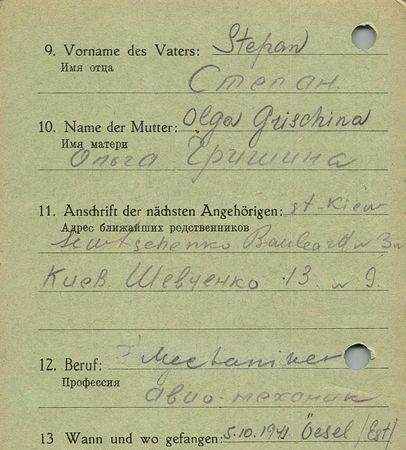 9. Vorname des Vaters: Stepan
Имя отца
Степан
10. Name der Mutter: Olga Grischina
Имя матери
Ольга Гришина
11. Anschrift der nächsten Angehörigen: st. Kiew
Адрес ближайших родственников
Киев. Шевченко 13 9.
12. Beruf: Mechaniker
Профессия
авио-механик
13 Wann und wo gefangen: 5.10.1941 Öesel (Est)